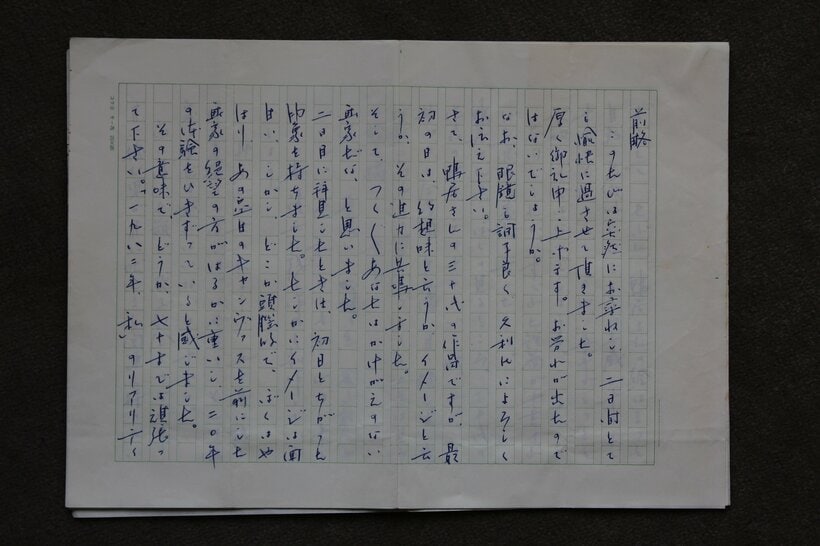 前略
このたびは突然にお訪ねし、二日間とて
も愉快に過させて頂きました。
厚く御礼申し上げます。お労れが出たので
はないでしょうか。
なお、眼鏡も調子良く 久利氏によろしく
お伝え下さい。
さて、鴨居さんの三十代の作品ですが、最
初の日は、幻想味と云うか イメージと云
うか、その迫力に共鳴しました。
そして、つくづくあなたはかけがえのない
画家だな、と思いました。
二日目に拝見したときは、初日とちがった
印象を持ちました。たしかにイメージは面
白い、しかし、どこか頭脳的で、ぼくはや
はり、あの空白のキャンヴァスを前にした
画家の絶望の方がはるかに重いし、二〇年
の体験をひきずっていると感じました。
その意味で どうか、七十までは頑張っ
て下さい。「一九八二年、私」のリアリティ